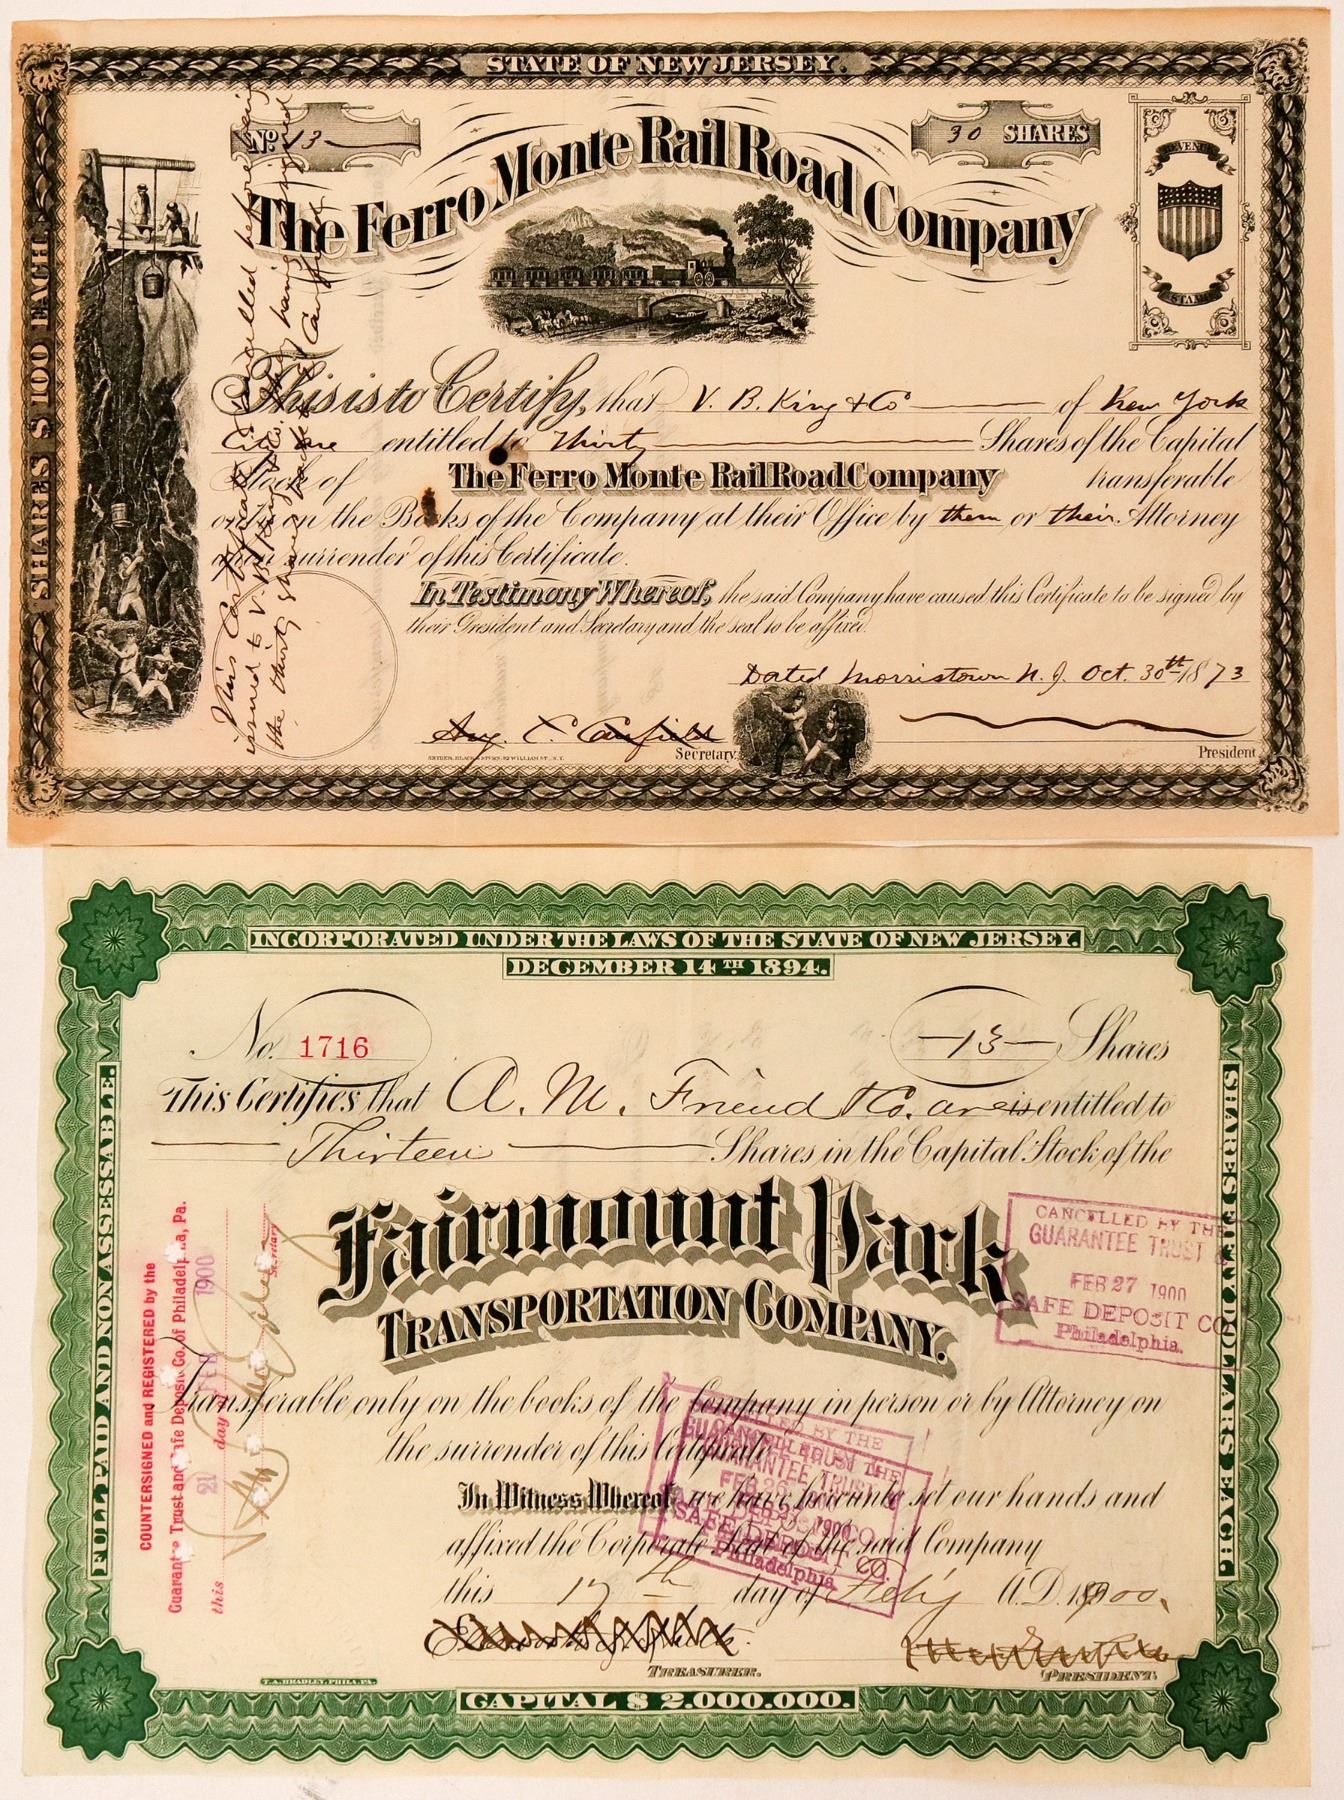 STATE OF NEW JERSEY.
No. 13
30 SHARES
The Ferro Monte Rail Road Company
REVENUE
STAMP
SHARES $100 EACH
This is to Certify, that V. B. King & Co of New York
City are entitled to Thirty Shares of the Capital
Stock of The Ferro Monte Rail Road Company transferable
only on the Books of the Company at their Office by them or their Attorney
upon surrender of this Certificate.
In Testimony Whereof, the said Company have caused this Certificate to be signed by
their President and Secretary and the seal to be affixed.
Dated Morristown N. J. Oct. 30th 1873
Aug. C. Canfield
Secretary
President
This Certificate cancelled before being
issued to V. B. King & Co. having
the thirty shares Canfield
INCORPORATED UNDER THE LAWS OF THE STATE OF NEW JERSEY.
DECEMBER 14TH 1894.
FULL PAID AND NON ASSESSABLE.
SHARES FIFTY DOLLARS EACH.
No. 1716
—13— Shares
This Certifies that A. M. Friend & Co. are is entitled to
Thirteen Shares in the Capital Stock of the
Fairmount Park
TRANSPORTATION COMPANY.
Transferable only on the books of the Company in person or by Attorney on
the surrender of this Certificate.
In Witness Whereof we have hereunto set our hands and
affixed the Corporate Seal of the said Company
this 17th day of Feb'y A.D. 1900.
TREASURER.
PRESIDENT.
T. A. BRADLEY, PHILA, PA.
CAPITAL $ 2.000.000.
COUNTERSIGNED and REGISTERED by the
Guarantee Trust and Safe Deposit Co. of Philadelphia, Pa.
this 21 day of FEB 1900
Secretary
CANCELLED BY THE
GUARANTEE TRUST &
FEB 27 1900
SAFE DEPOSIT CO.
Philadelphia.
CANCELLED BY THE
GUARANTEE TRUST &
FEB 26 1900
SAFE DEPOSIT CO.
Philadelphia